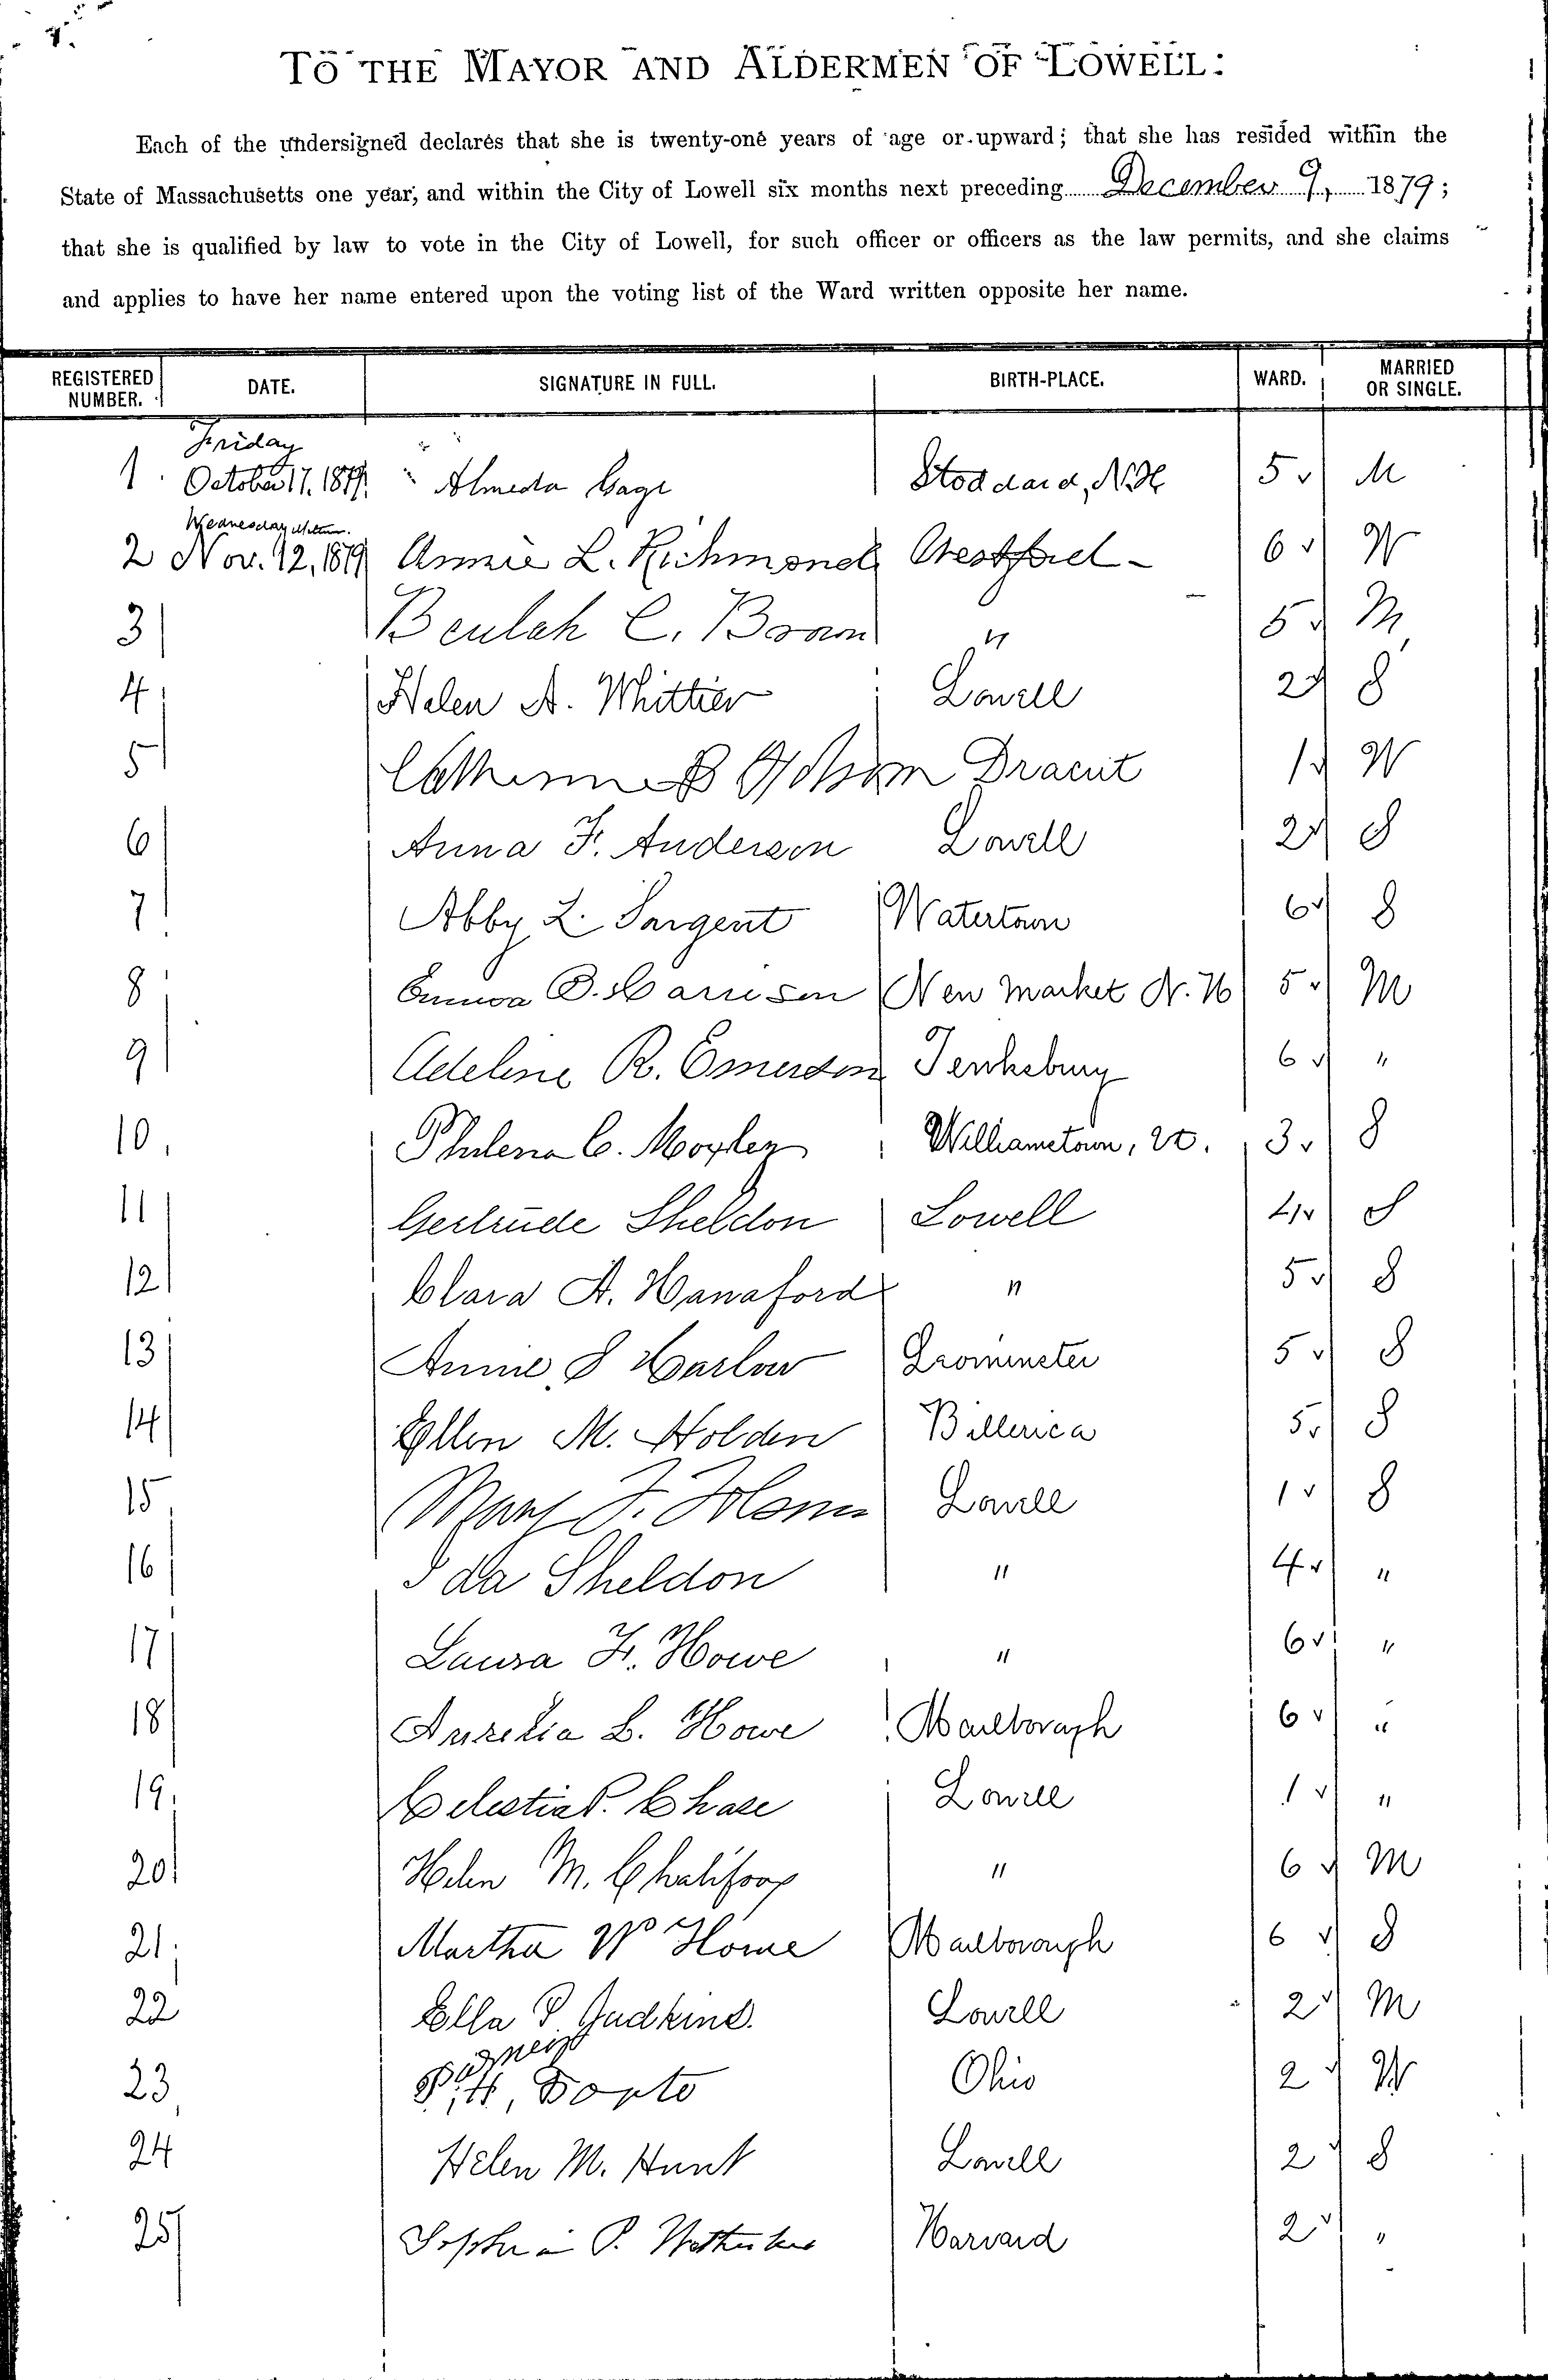 TO THE MAYOR AND ALDERMEN OF LOWELL:
Each of the undersigned declares that she is twenty-one years of age or upward; that she has resided within the
State of Massachusetts one year, and within the City of Lowell six months next preceding December 9, 1879;
that she is qualified by law to vote in the City of Lowell, for such officer or officers as the law permits, and she claims
and applies to have her name entered upon the voting list of the Ward written opposite her name.
REGISTERED NUMBER. DATE. SIGNATURE IN FULL. BIRTH-PLACE. WARD. MARRIED OR SINGLE.
Friday
1 October 17, 1879. Almeda Gage Stoddard, N.H. 5 M
Wednesday
2 Nov. 12, 1879 Annie L. Richmond Westford 6 W
3 Beulah C. " 5 M
4 Helen A. Whittier Lowell 2 S
5 B Dracut 1 W
6 Anna F. Anderson Lowell 2 S
7 Abby L. Sargent Watertown 6 S
8 Emma O. Harrison New Market N. H 5 M
9 Adeline R. Emerson Tewksbury 6 "
10 Philena C. Williamstown, Vt. 3 S
11 Gertrude Sheldon Lowell 4 S
12 Clara A. Hanaford " 5 S
13 Annie S Harlow 5 S
14 Ellen M. Holden Billerica 5 S
15 Mary F. Lowell 1 S
16 Ida Sheldon " 4 "
17 Laura F. Howe " 6 "
18 Aurelia L. Howe Marlborough 6 "
19 Celestia P. Chase Lowell 1 "
20 Helen M. Chalifoux " 6 M
21 Martha W Howe Marlborough 6 S
22 Ella P. Judkins. Lowell 2 M
23 Ohio 2 W
24 Helen M. Hunt Lowell 2 S
25 Sophia P. Harvard 2 "